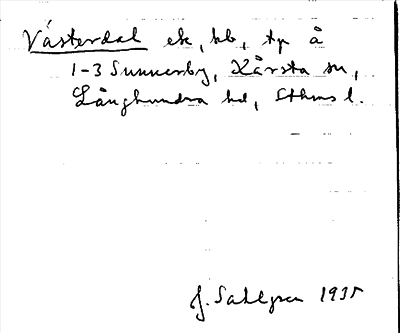 Västerdal ek, hb, tp å
1-3 Sunnerby, Kårsta sn,
Långhundra hd, Sthms l.
J. Sahlgren 1935